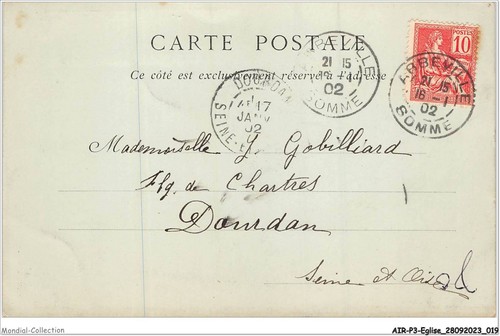 CARTE POSTALE
Ce côté est exclusivement réservé à l'adresse
POSTES
10
ABBEVILLE
21 15
16 -1
02
SOMME
ABBEVILLE
21 15
02
SOMME
DOURDAN
17
JANV
02
SEINE
Mademoiselle Y. Gobilliard
Fbg. de Chartres
Dourdan
Seine et Oise
Mondial-Collection
AIR-P3-Eglise_28092023_019